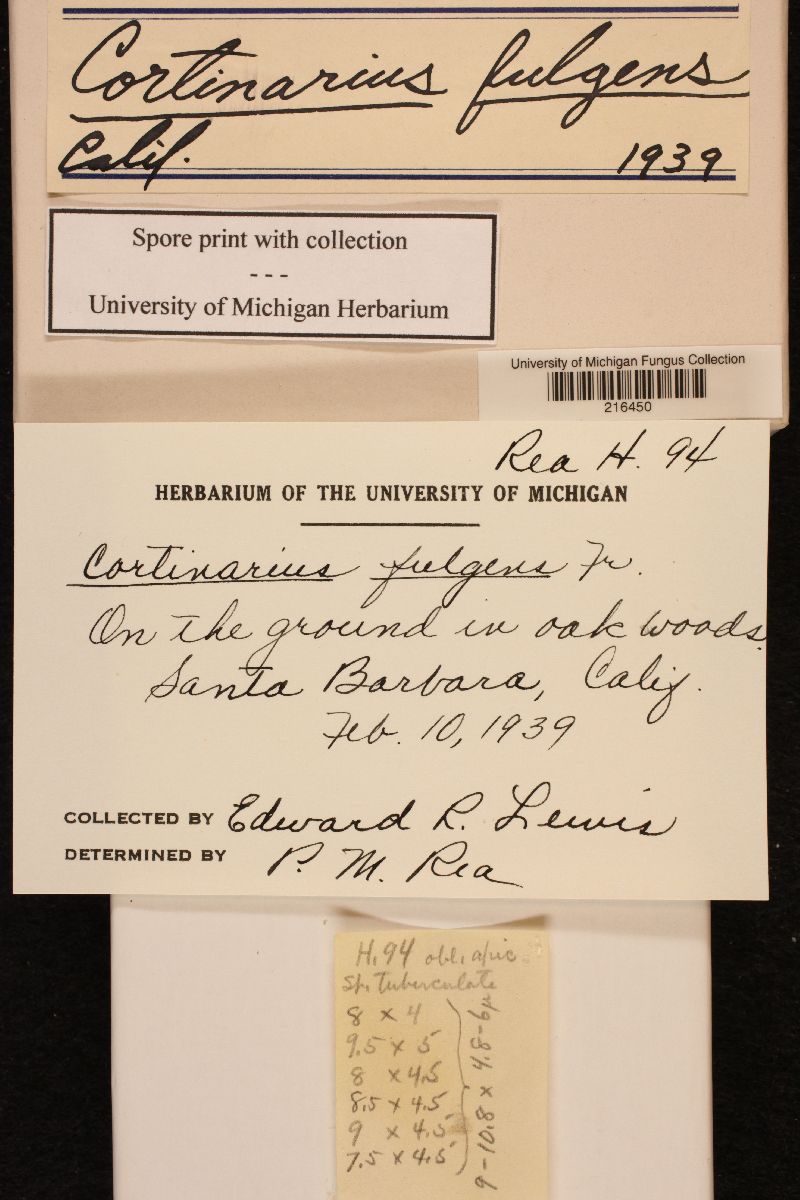 Cortinarius fulgens
Calif. 1939
Spore print with collection
---
University of Michigan Herbarium
University of Michigan Fungus Collection
216450
Rea H. 94
HERBARIUM OF THE UNIVERSITY OF MICHIGAN
Cortinarius fulgens Fr.
On the ground in oak woods.
Santa Barbara, Calif.
Feb. 10, 1939
COLLECTED BY Edward R. Lewis
DETERMINED BY P. M. Rea
H. 94 obl. apic.
Sp. tuberculate
8 x 4
9.5 x 5
8 x 4.5
8.5 x 4.5
9 x 4.5
7.5 x 4.5
9-10.8 x 4.8-6μ